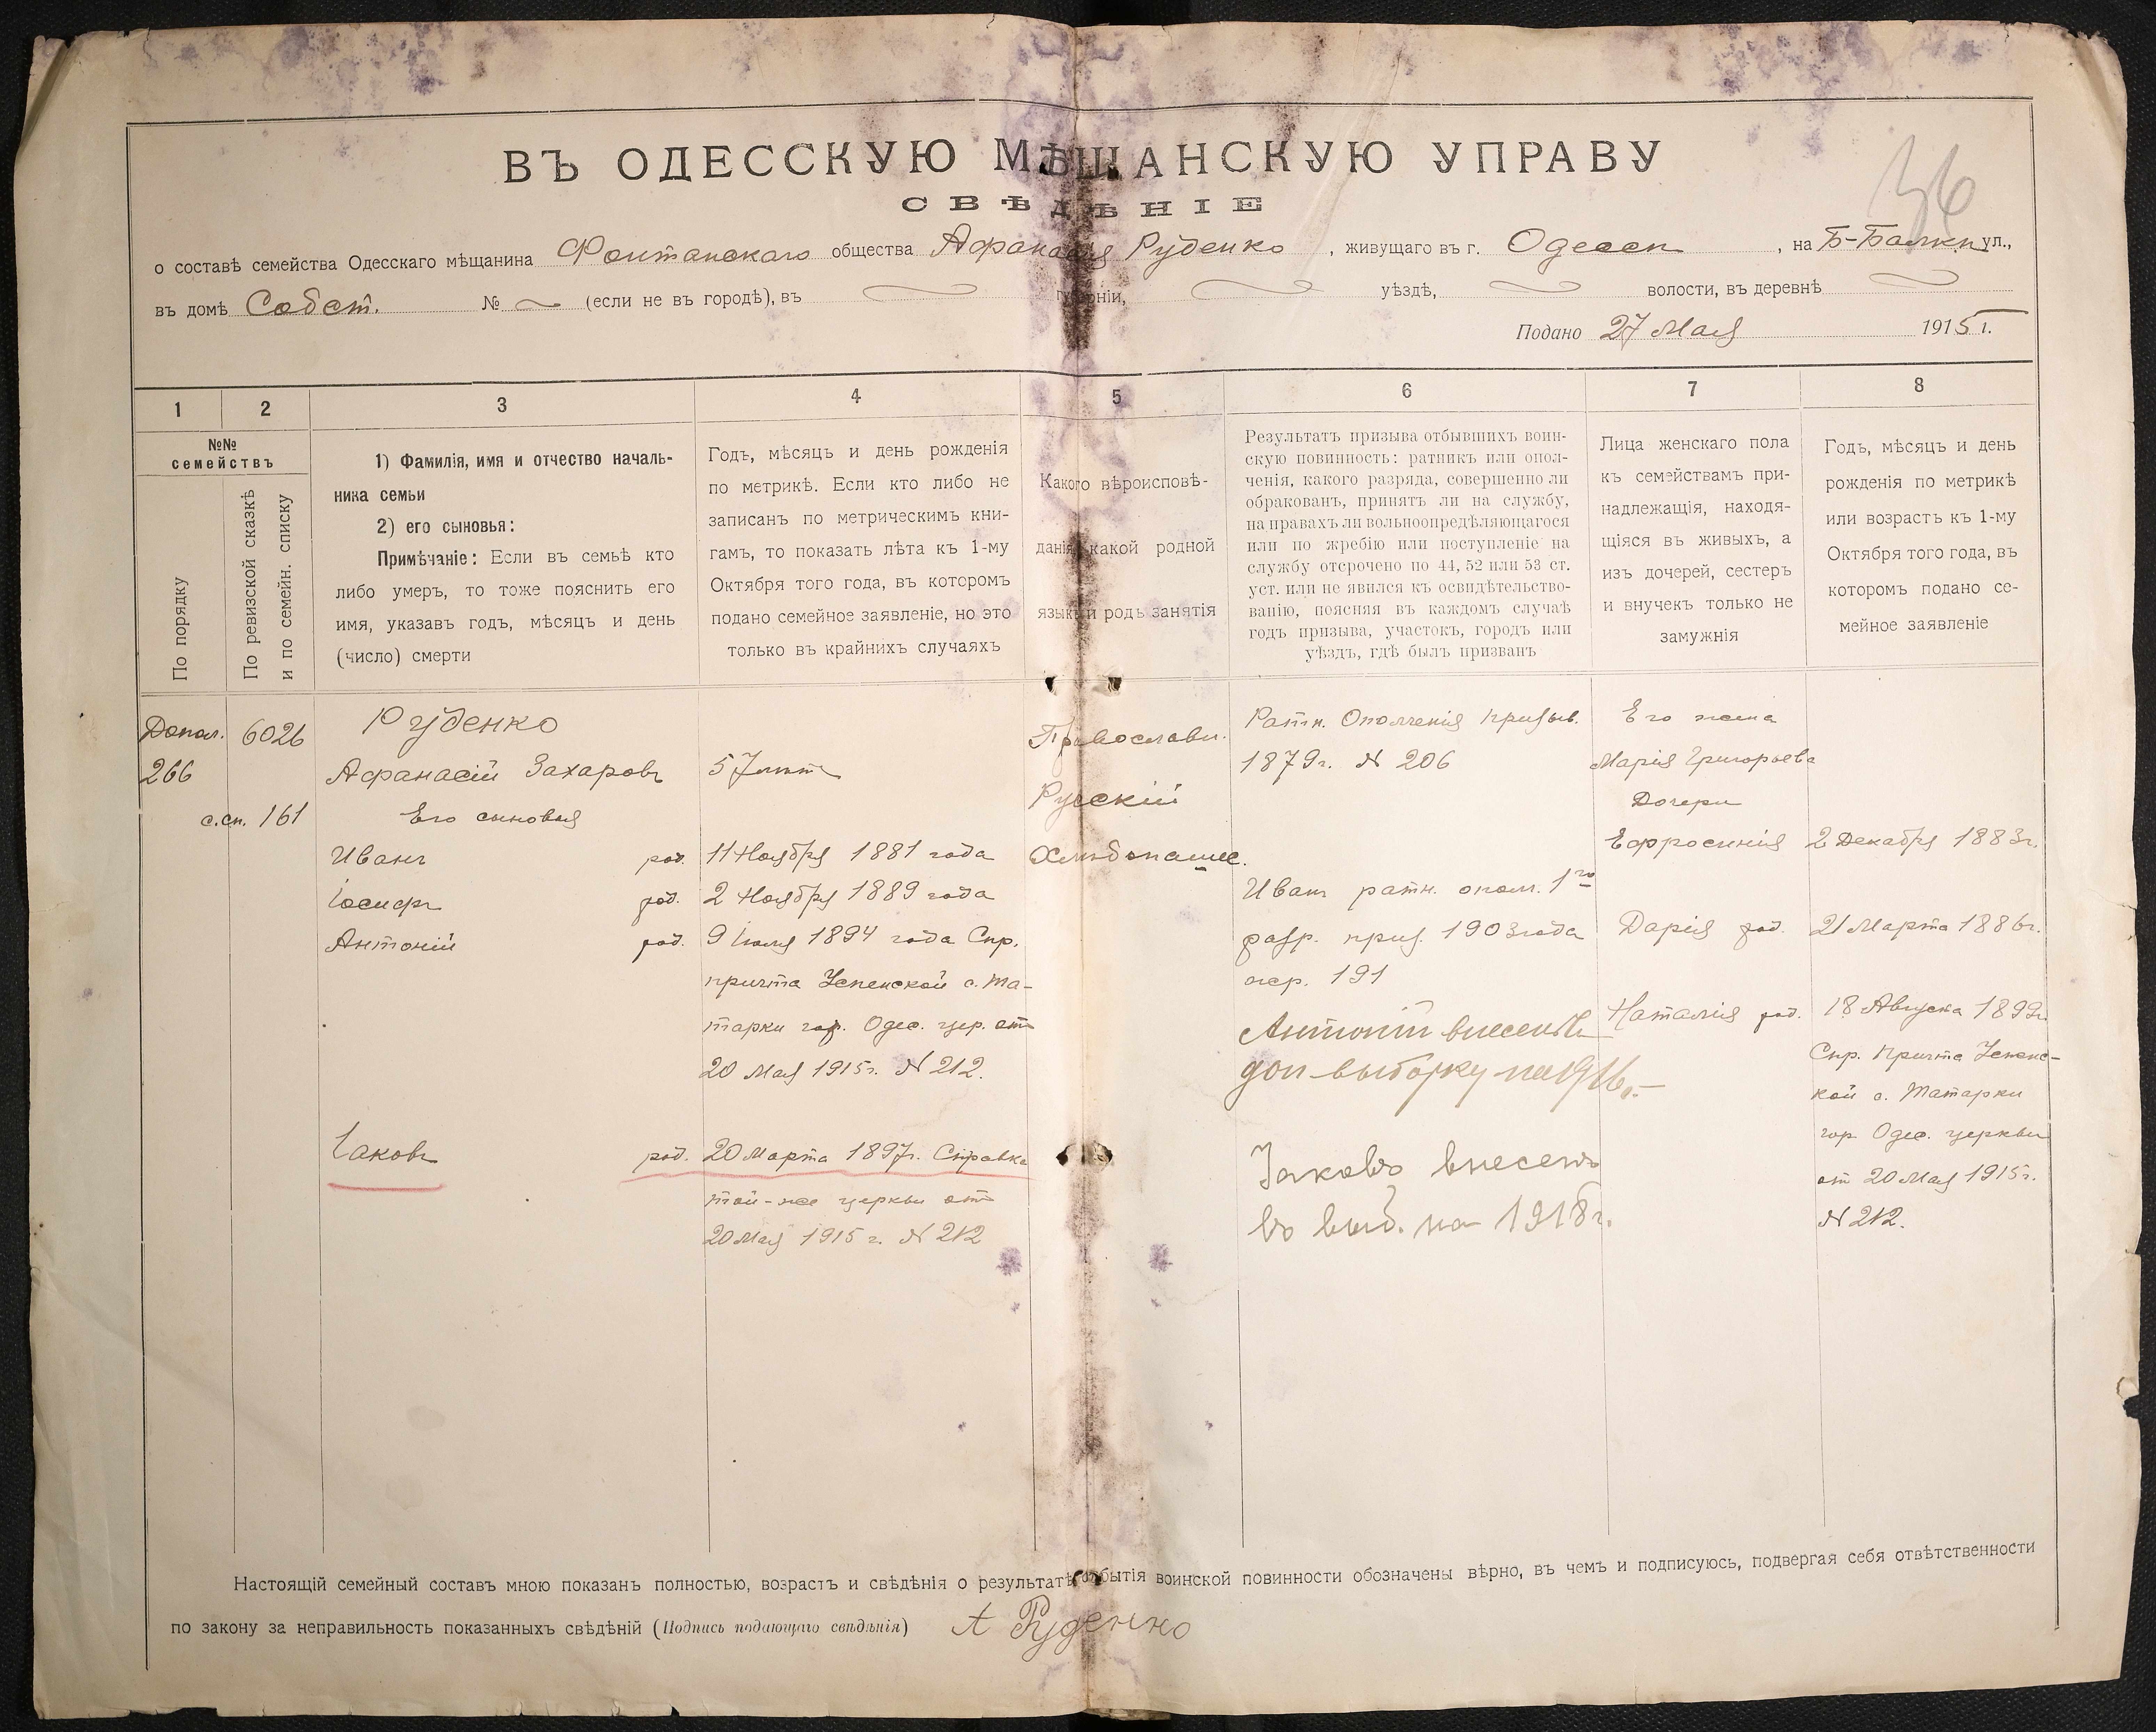 36
ВЪ ОДЕССКУЮ МѢЩАНСКУЮ УПРАВУ
СВѢДѢНІЕ
о составѣ семейства Одесскаго мѣщанина Фонтанскаго общества Афанасія Руденко, живущаго въ г. Одессѣ, на Б-Балкѣ ул.,
въ домѣ Собст. № (если не въ городѣ), въ губерніи, уѣздѣ, волости, въ деревнѣ
Подано 27 Мая 1915 г.
1 2 3 4 5 6 7 8
№№
семействъ
По порядку
По ревизской сказкѣ
и по семейн. списку
1) Фамилія, имя и отчество началь-
ника семьи
2) его сыновья:
Примѣчаніе: Если въ семьѣ кто
либо умеръ, то тоже пояснить его
имя, указавъ годъ, мѣсяцъ и день
(число) смерти
Годъ, мѣсяцъ и день рожденія
по метрикѣ. Если кто либо не
записанъ по метрическимъ кни-
гамъ, то показать лѣта къ 1-му
Октября того года, въ которомъ
подано семейное заявленіе, но это
только въ крайнихъ случаяхъ
Какого вѣроисповѣ-
данія, какой родной
языкъ и родъ занятія
Результатъ призыва отбывшихъ воин-
скую повинность: ратникъ или опол-
ченія, какого разряда, совершенно ли
обракованъ, принятъ ли на службу,
на правахъ ли вольноопредѣляющагося
или по жребію или поступленіе на
службу отсрочено по 44, 52 или 53 ст.
уст. или не явился къ освидѣтельство-
ванію, поясняя въ каждомъ случаѣ
годъ призыва, участокъ, городъ или
уѣздъ, гдѣ былъ призванъ
Лица женскаго пола
къ семействамъ при-
надлежащія, находя-
щіяся въ живыхъ, а
изъ дочерей, сестеръ
и внучекъ только не
замужнія
Годъ, мѣсяцъ и день
рожденія по метрикѣ
или возрастъ къ 1-му
Октября того года, въ
которомъ подано се-
мейное заявленіе
Допол.
266
6026
с.сп. 161
Руденко
Афанасій Захаровъ
Его сыновья
Иванъ род.
Іосифъ род.
Антоній род.
Іаковъ род.
57 лѣтъ
11 Ноября 1881 года
2 Ноября 1889 года
9 Іюля 1894 года Спр.
причта Успенской с. Та-
тарки гор. Одес. цер. отъ
20 Мая 1915 г. N 212.
20 Марта 1897 г. Справка
той-же церкви отъ
20 Мая 1915 г. N 212
Православн.
Русскій
Хлѣбопашес.
Ратн. Ополченія призыв.
1879 г. N 206
Иванъ ратн. ополч. 1го
разр. приз. 1903 года
жер. 191
Антоній внесенъ въ
доп выборку на 1916 г.
Іаковъ внесенъ
въ выб. на 1918 г.
Его жена
Марія Григорьева
Дочери
Евфросинія
Дарія род.
Наталія род.
2 Декабря 1883 г.
21 Марта 1886 г.
18 Августа 1899 г.
Спр. Причта Успенс-
кой с. Татарки
гор Одес. церкви
отъ 20 Мая 1915 г.
N 212.
Настоящій семейный составъ мною показанъ полностью, возрастъ и свѣдѣнія о результатѣ отбытія воинской повинности обозначены вѣрно, въ чемъ и подписуюсь, подвергая себя отвѣтственности
по закону за неправильность показанныхъ свѣдѣній (Подпись подающаго свѣдѣнія) А Руденко